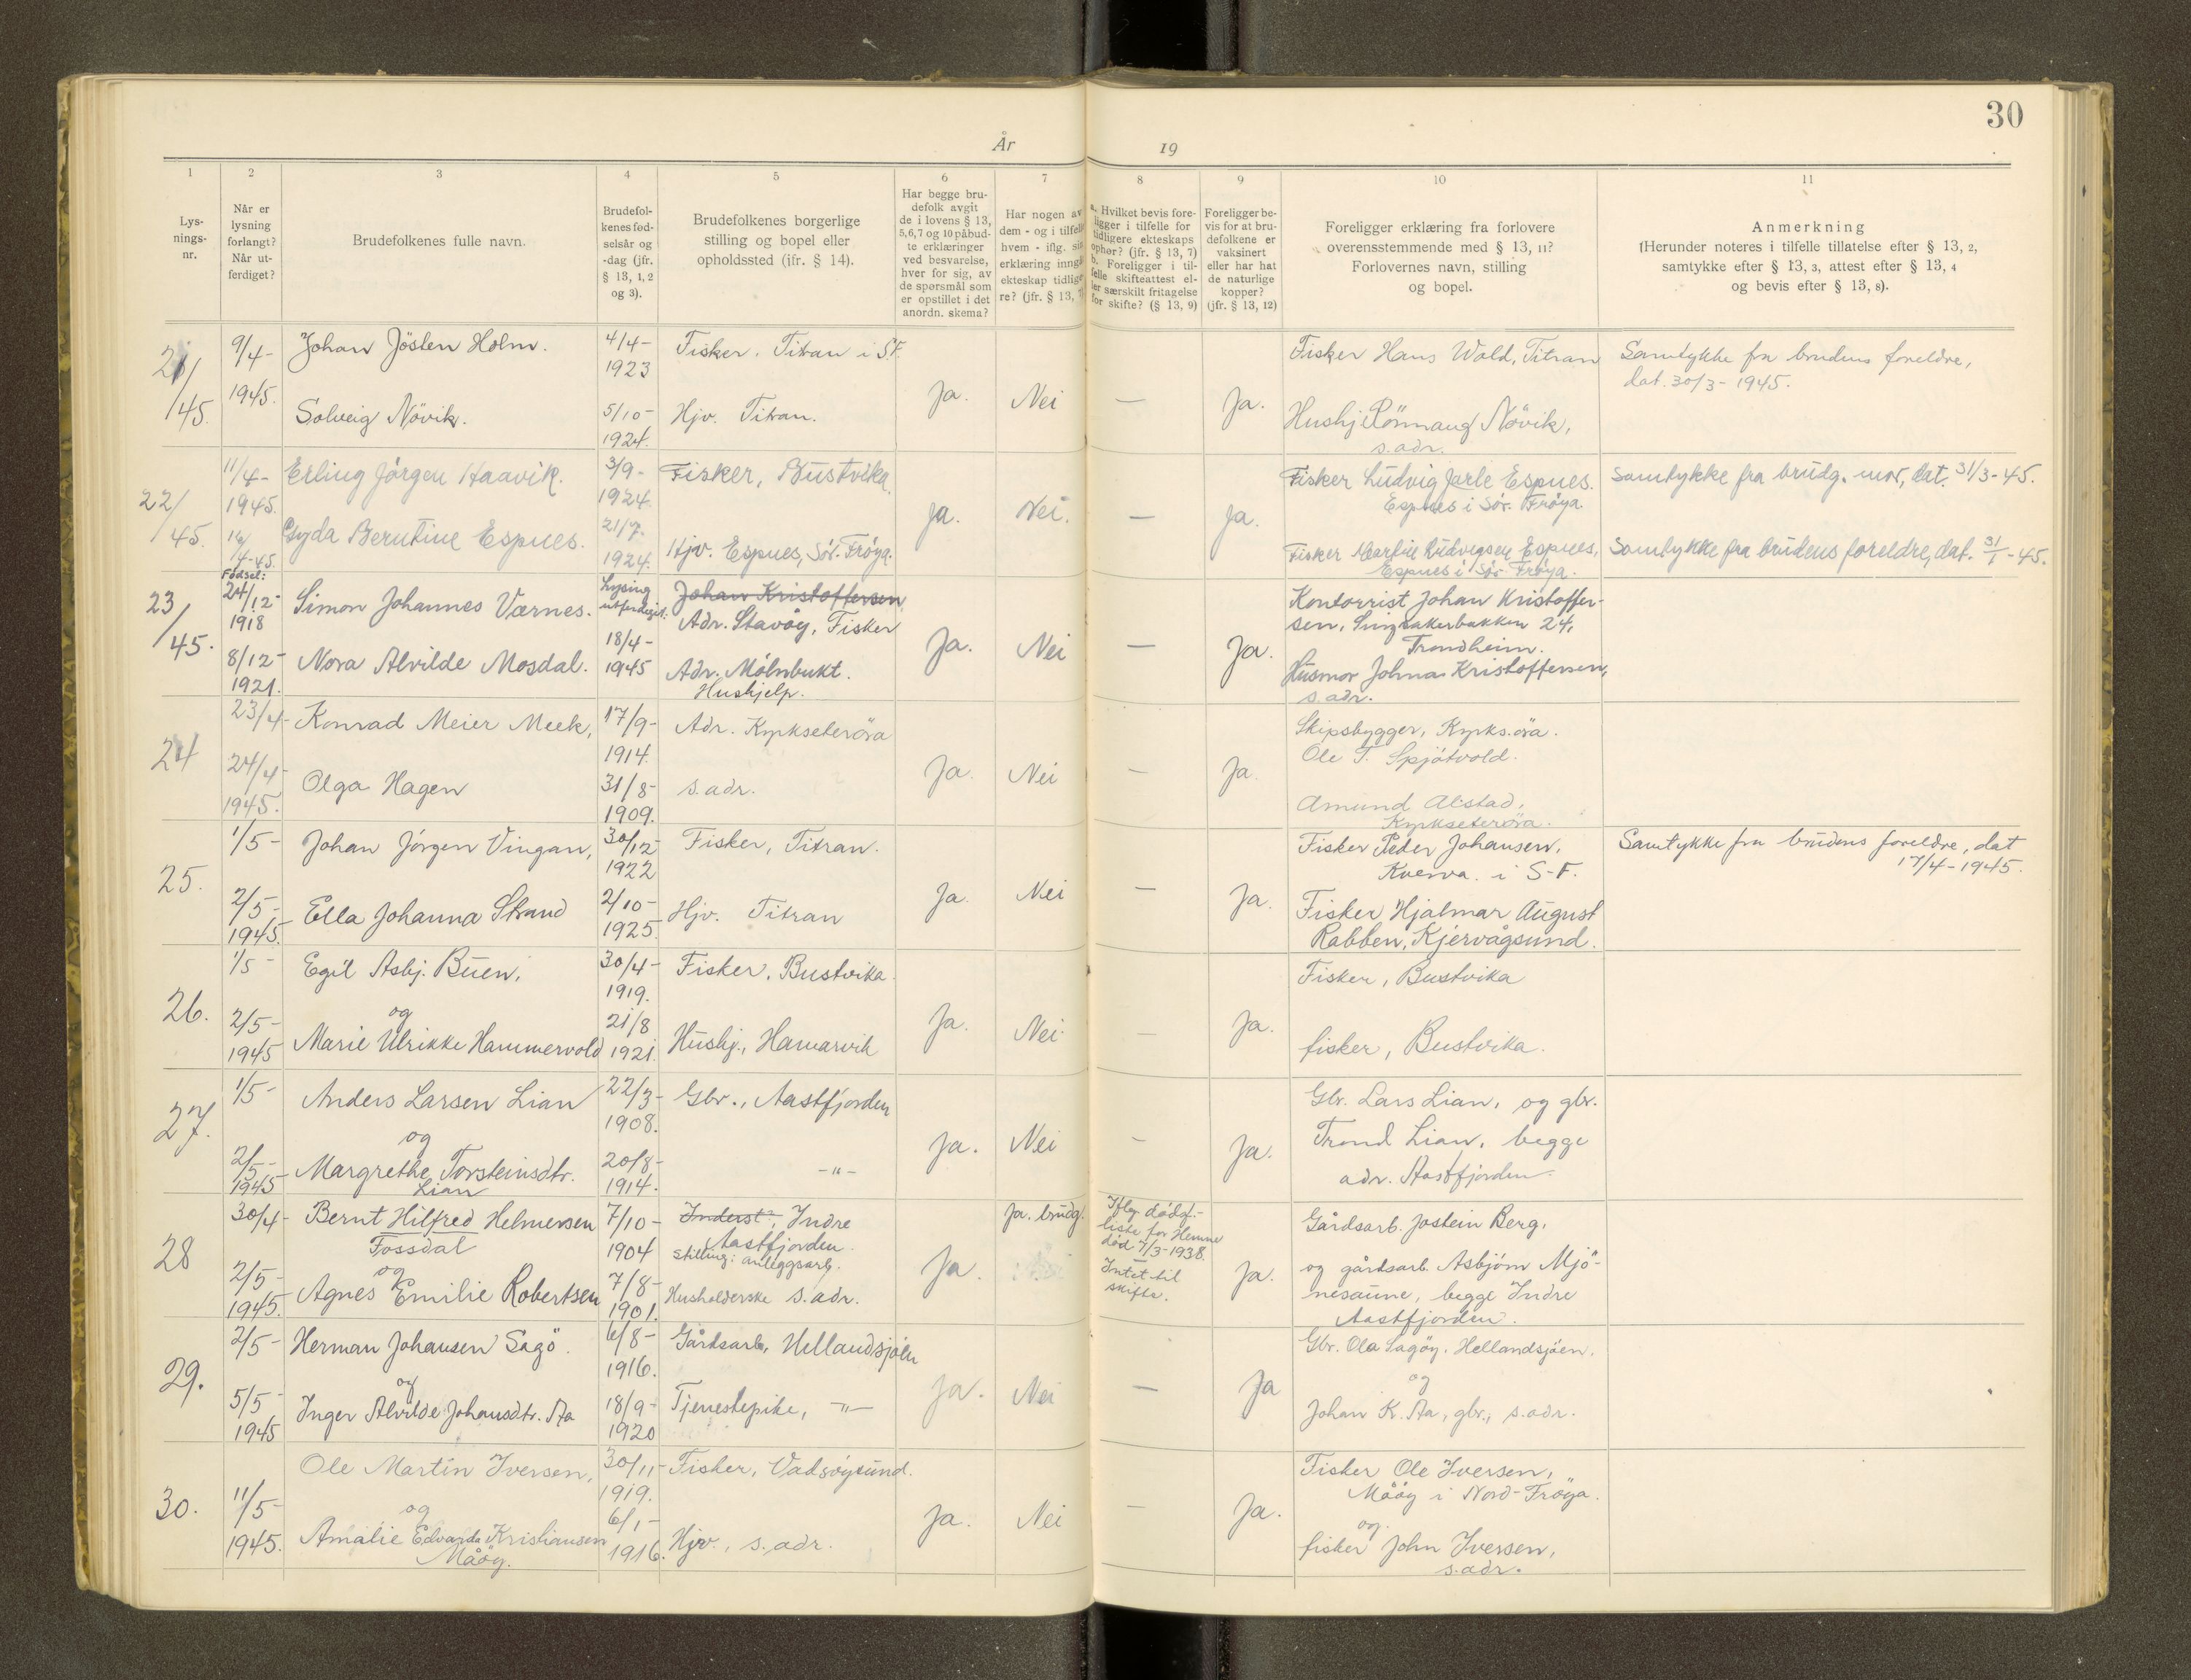 30
År 19
1
Lys-
nings-
nr.
2
Når er
lysning
forlangt?
Når ut-
ferdiget?
3
Brudefolkenes fulle navn.
4
Brudefol-
kenes fød-
selsår og
-dag (jfr.
§ 13, 1, 2
og 3).
5
Brudefolkenes borgerlige
stilling og bopel eller
opholdssted (jfr. § 14).
6
Har begge bru-
defolk avgit
de i lovens § 13,
5,6,7 og 10 påbud-
te erklæringer
ved besvarelse,
hver for sig, av
de spørsmål som
er opstillet i det
anordn. skema?
7
Har nogen av
dem - og i tilfelle
hvem - iflg. sin
erklæring inngå
ekteskap tidlige
re? (jfr. § 13, 7)
8
a. Hvilket bevis fore-
ligger i tilfelle for
tidligere ekteskaps
ophør? (jfr. § 13, 7)
b. Foreligger i til-
felle skifteattest el-
ler særskilt fritagelse
for skifte? (§ 13, 9)
9
Foreligger be-
vis for at bru-
defolkene er
vaksinert
eller har hat
de naturlige
kopper?
(jfr. § 13, 12)
10
Foreligger erklæring fra forlovere
overensstemmende med § 13, 11?
Forlovernes navn, stilling
og bopel.
11
Anmerkning
(Herunder noteres i tilfelle tillatelse efter § 13, 2,
samtykke efter § 13, 3, attest efter § 13, 4
og bevis efter § 13, 8).
21/
/45.
9/4-
1945.
Johan Jösten Holm.
Solveig Növik.
4/4-
1923
5/10-
1924.
Fisker. Titran i S.F.
Hjv. Titran.
Ja.
Nei
—
Ja.
Fisker Hans Wold, Titran
Hushj. Rönnaug Növik,
s.adr.
Samtykke fra brudens foreldre,
dat. 30/3-1945.
22/
45.
11/4-
1945.
16/4-45.
Erling Jörgen Haavik.
Gyda Berntine Espnes.
3/9-
1924.
21/7.
1924.
Fisker, Bustvika.
Hjv. Espnes, Sör-Fröya.
Ja.
Nei.
—
Ja.
Fisker Ludvig Jarle Espnes.
Espnes i Sör-Fröya.
Fisker Martin Ludvigsen Espnes,
Espnes i Sör-Fröya.
Samtykke fra brudg. mor, dat. 31/3-45.
Samtykke fra brudens foreldre, dat. 31/1-45.
23/
45.
Födsel:
24/12-
1918
8/12-
1921.
Simon Johannes Værnes.
Nora Alvilde Mosdal.
Lysing
utferdiget:
18/4-
1945
Johan Kristoffersen
Adr. Stavöy, Fisker
Adr. Mölnbukt.
Hushjelp.
Ja.
Nei
—
Ja.
Kontorrist Johan Kristoffer-
sen, Singsakerbakken 24,
Trondheim.
Husmor Johna Kristoffersen,
s.adr.
24
23/4-
24/4-
1945.
Konrad Meier Meek,
Olga Hagen
17/9-
1914.
31/8-
1909.
Adr. Kyrkseteröra
s.adr.
Ja.
Nei
—
Ja.
Skipsbygger, Kyrks.öra.
Ole T. Spjötvold.
Amund Alstad,
Kyrkseteröra.
25.
1/5-
2/5-
1945.
Johan Jörgen Vingan,
Ella Johanna Strand
30/12-
1922
2/10-
1925.
Fisker, Titran.
Hjv. Titran
Ja.
Nei
—
Ja.
Fisker Peder Johansen,
Kverva. i S-F.
Fisker Hjalmar August
Rabben, Kjervågsund.
Samtykke fra brudens foreldre, dat
17/4-1945.
26.
1/5-
2/5-
1945
Egil Asbj. Buen,
og
Marie Ulrikke Hammervold
30/4-
1919.
21/8
1921.
Fisker, Bustvika.
Hushj., Hamarvik
Ja.
Nei.
—
Ja.
Fisker, Bustvika
fisker, Bustvika.
27.
1/5-
2/5-
1945
Anders Larsen Lian
og
Margrethe Torsteinsdtr.
Lian
22/3-
1908.
20/8-
1914.
Gbr., Aastfjorden
-"-
Ja.
Nei
—
Ja.
Gbr. Lars Lian, og gbr.
Trond Lian, begge
adr. Aastfjorden.
28
30/4-
2/5-
1945.
Bernt Hilfred Helmersen
Fossdal
og
Agnes Emilie Robertsen
7/10-
1904
7/8-
1901.
Inderst, Indre
Aastfjorden.
Stilling: anleggsarb.
Husholderske s.adr.
Ja.
Ja. brudg.
Iflg. dödsf.-
liste for Hemne
död 7/3-1938.
Intet til
skifte.
Ja.
Gårdsarb. Jostein Berg,
og gårdsarb. Asbjörn Mjö-
nesaune, begge Indre
Aastfjorden.
29.
2/5-
5/5-
1945
Herman Johansen Sagö.
og
Inger Alvilde Johansdtr. Aa
6/8-
1916.
18/9-
1920
Gårdsarb, Hellandsjöen
Tjenestepike, -"-
Ja.
Nei
—
Ja
Gbr. Ola Sagöy. Hellandsjöen.
og
Johan K. Aa, gbr., s.adr.
30.
11/5-
1945.
Ole Martin Iversen,
og
Amalie Edvarda Kristiansen
Måöy.
30/11-
1919.
6/1-
1916.
Fisker, Vadsöysund.
Hjv., s.adr.
Ja.
Nei
—
Ja.
Fisker Ole Iversen,
Måöy i Nord-Fröya.
og
fisker John Iversen,
s.adr.